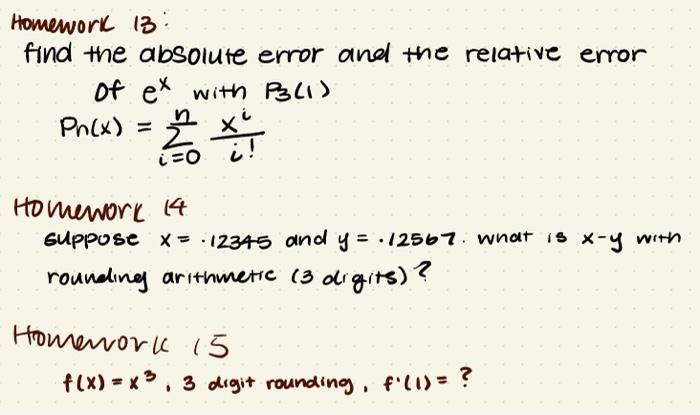 Homework 13:
find the absolute error and the relative error
of eˣ with P₃(1)
Pn(x) = n∑i=0 xⁱ/i!
Homework 14
suppose x = .12345 and y = .12567. what is x-y with
rounding arithmetic (3 digits)?
Homework 15
f(x) = x³, 3 digit rounding, f'(1) = ?